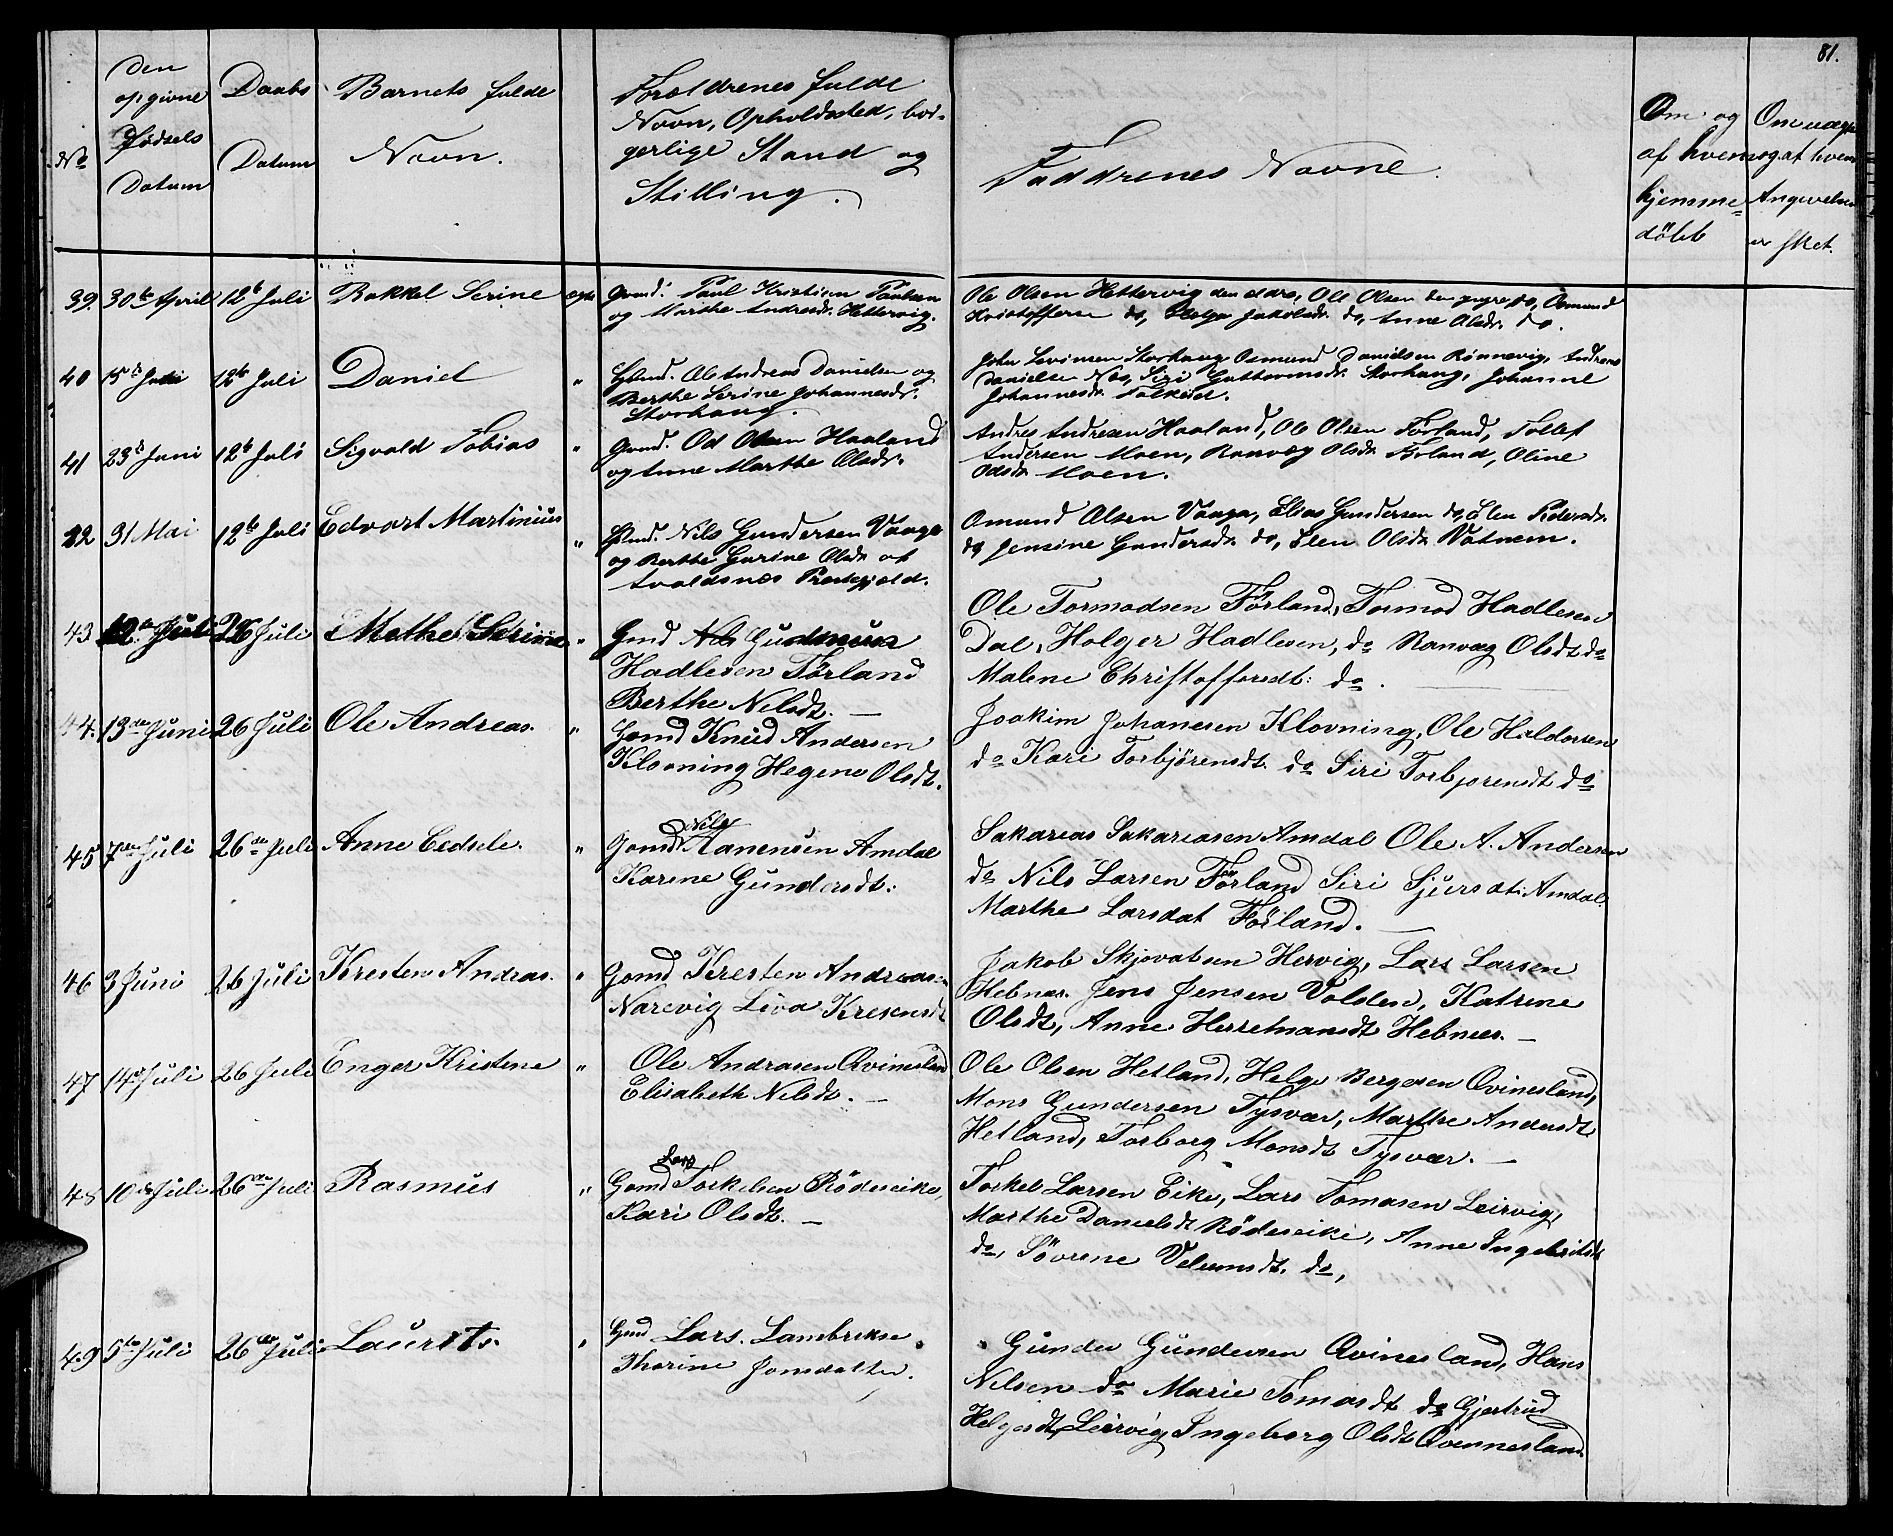 81.
No
Den opgivne Fødsels Datum
Daabs Datum
Barnets fulde Navn.
Forældrenes fulde
Navn, Opholdssted, bor-
gerlige Stand og
Stilling.
Faddrenes Navne.
Om og af hvem hjemme- döbt
Om og af hvem Angivelse er sket.
39. 30te April 12te Juli Rakkel Serine egte Gmd. Paul Kristian Paulsen
og Marthe Andreasdr. Hettervig.
Ole Olsen Hettervig den eldre, Ole Olsen den yngre do, Osmund
Kristoffersen do, Helga Jakobsdr. do, Anne Olsdr. do.
40 15de 12te Juli Daniel "
Ole Andreas Danielsen og
Berthe Serine Johannesdr.
Storhaug.
John Sevrinsen Storhaug Osmund Danielsen Rønnevig, Andreas
Danielsen Nes, Siri Guttormsdr. Storhaug, Johanne
Johannesdr. Falkeid.
41 23de Juni 12te Juli Sigvald Tobias " Gmd. Od Olsen Haaland
og Anne Marthe Olsdr.
Andres Andresen Haaland, Ole Olsen Førland, Tollef
Andersen Moen, Ranvæg Olsdr. Førland, Oline
Odsdr. Moen.
22 31 Mai 12te Juli Edvart Martinius " Nils Gundersen Vaage
og Berthe Gurine Olsdr. af
Avaldsnæs Prestegjæld.
Omund Olsen Vaaga, Elias Gundersen do, Elen Pedersdr.
do Jensine Gundersdr. do, Elen Olsdr. Vatnem.
43 Juli 26 Juli Mathe Serine " Gmd Nils Gudmun
Hadlesen Førland
Berthe Nilsdt. —
Ole Tormodsen Førland, Tormod Hadlesen
Dal, Holger Hadlesen, do Ranvæg Olsdt do
Malene Christoffersdt: do.
44. 13de Juni 26 Juli Ole Andreas. " Gmd Knud Andersen
Klovning Hegene Olsdt.
Joakim Johanesen Klovning, Ole Haldorsen
do Kari Torbjørensdt. do Siri Torbjorensdt do
45 7de Juli 26de Juli Anne Cedsele. " Gmd Nils Hanensen Amdal
Karene Gundersdt:
Sakarias Sakariasen Amdal Ole A. Andersen
do Nils Larsen Førland Siri Sjursdt: Amdal.
Marthe Larsdat Førland. —
46 3 Juni 26 Juli Kresten Andreas. " Gmd Kresten Andreas
Narevig Liva Kresensdt
Jakob Skjovatsen Hervig, Lars Larsen
Hebnæs. Jens Jensen Valsten, Katrine
Olsdt, Anne Herremansdt Hebnæs. —
47 14de Juli 26 Juli Enger Kristine " Ole Andrasen Qvinesland
Elisabeth Nilsdt. —
Ole Olsen Hetland, Helge Bergesen Qvinesland,
Mons Gundersen Tysvær, Marthe Andersdt.
Hetland, Torborg Monsdt Tysvær. —
48 10de Juli 26de Juli Rasmus " Gmd Lars Torkelsen Rödeseike,
Kari Olsdt. —
Torkel Larsen Eike, Lars Tomasen Leirvig,
Marthe Danielsdt Rödeseike, Anne Ingebritsdt
do, Sövrene Velumsdt. do,
49 5te Juli 26de Juli Laurits. " Gmd Lars. Lambrekse
Thorine Jonsdatter.
Gunder Gundersen Qvinesland, Hans
Nelsen do Marie Tomasdt do Gjertrud
Helgesdt, Leirvig Ingeborg Olsdt Qvennesland.